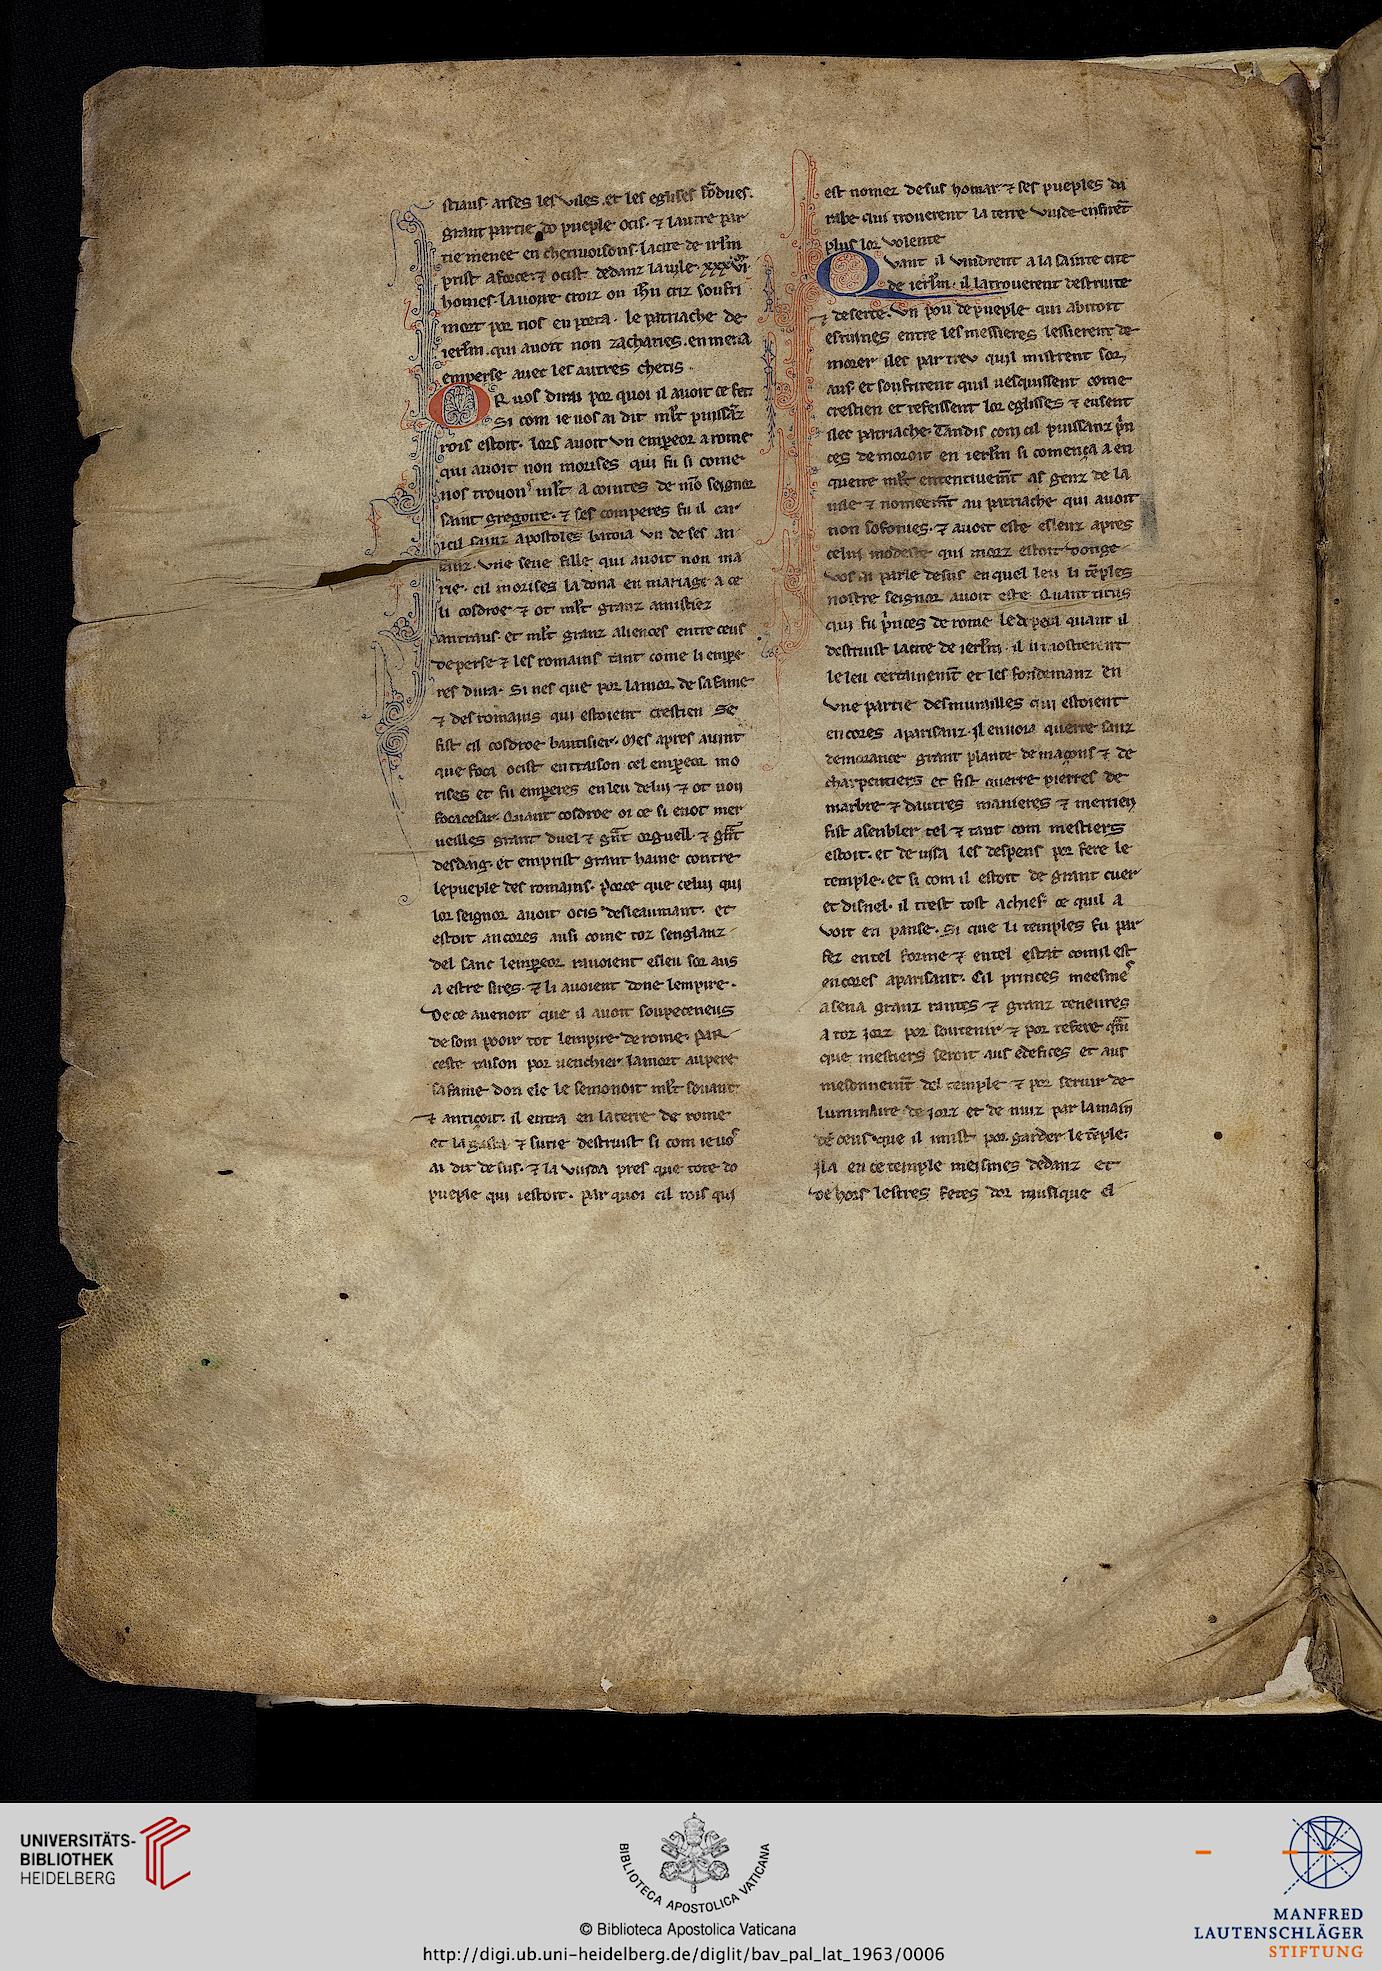 stiaus arses les viles. et les eglises fōdues.
grant partie do pueple ocis. ⁊ lautre par
tie menee en chetivoisons. la cite de ierl̄m
prist a force. ⁊ ocist dedanz la vile. xxxvi.
homes. la voire croiz ou ih̄u criz soufri
mort por nos en porta. le patriache de
ierl̄m. qui avoit non zacharies. en mena
em perse avec les autres chetis.
OR vos dirai por quoi il avoit ce fet.
Si com ie vos ai dit ml̄t puissāz
rois estoit. lors avoit vn empeor a rome
qui avoit non morises qui fu si come
nos trovons ml̄t acointes de mō seignor
saint gregoire. ⁊ ses comperes fu il car
icil sainz apostoles batoia vn de ses an
fanz. vne seue fille qui avoit non ma
rie. cil morises la dona en mariage a ce
li cosdroe ⁊ ot ml̄t granz amistiez
antraus. et ml̄t granz aliences entre ceus
de perse ⁊ les romains tant come li empe
res dura. Si nes que por lamor de sa fame
⁊ des romains qui estoient crestien se
fist cil cosdroe bautisier. Mes apres avint
que foca ocist en traison cel empeor mo
rises et fu emperes en leu de lui ⁊ ot non
focacesar. Quant cosdroe oi ce si enot mer
veilles grant duel ⁊ gn̄t orguell. ⁊ gn̄t
desdaig. et emprist grant haine contre
le pueple des romains. porce que celui qui
lor seignor avoit ocis desleaumant. et
estoit ancores ausi come toz senglanz
del sanc lempeor ravoient esleu sor aus
a estre sires. ⁊ li avoient done lempire.
De ce avenoit que il avoit soupeceneus
de som pooir tot lempire de rome. par
ceste raison por venchier la mort au pere
sa fame don ele le semonoit ml̄t sovant
⁊ antiçoit. il entra en la terre de rome
et la gasta ⁊ surie destruist si com ie vos
ai dit de sus. ⁊ la vuida pres que tote do
pueple qui iestoit. par quoi cil rois qui
est nomez desus homar ⁊ ses pueples da
rabe qui troverent la terre vuide enfirēt
plus lor volente
Quant il vindrent a la sainte cite
de ierl̄m. il la troverent destruite
⁊ deserte. vn pou de pueple qui abitoit
es ruines entre les messieres lessierent de
morer ilec par treu quil mistrent sor
aus et soufrirent quil vesquissent come
crestien et refeissent lor eglisses ⁊ eusent
ilec patriache. Tandis com cil puissanz p̄n
ces demoroit en ierl̄m si comença a en
querre ml̄t ententivem̄t as genz de la
vile ⁊ nomeem̄t au patriache qui avoit
non sofonies. ⁊ avoit este esleuz apres
celui modeste qui morz estoit donge
vos ai parle desus en quel leu li tēples
nostre seignor avoit este. Quant titus
qui fu p̄nces de rome le depeça quant il
destruist la cite de ierl̄m. il li mostrerent
le leu certainem̄t et les fondemanz en
vne partie des murailles qui estoient
encores aparisanz. Il envoia querre sanz
demorance grant plante de maçons ⁊ de
charpentiers et fist querre pierres de
marbre ⁊ dautres manieres ⁊ merrien
fist asenbler tel ⁊ tant com mestiers
estoit. et devisa les despens por fere le
temple. et si com il estoit de grant cuer
et disnel. il trest tost a chief ce quil a
voit en panse. Si que li temples fu par
fez en tel forme ⁊ en tel estat com il est
encores aparisant. Cil princes meesmes
asena granz rantes ⁊ granz teneures
a toz jorz por soutenir ⁊ por refere qm̄
que mestiers seroit aus edefices et aus
mesonnem̄t del temple ⁊ por servir de
luminaire de jorz et de nuiz par la main
de ceus que il mist por garder le tēple.
Ila en ce temple meismes dedanz et
de hors lestres fetes dor musique el
UNIVERSITÄTS-
BIBLIOTHEK
HEIDELBERG
BIBLIOTECA APOSTOLICA VATICANA
© Biblioteca Apostolica Vaticana
http://digi.ub.uni-heidelberg.de/diglit/bav_pal_lat_1963/0006
MANFRED
LAUTENSCHLÄGER
STIFTUNG